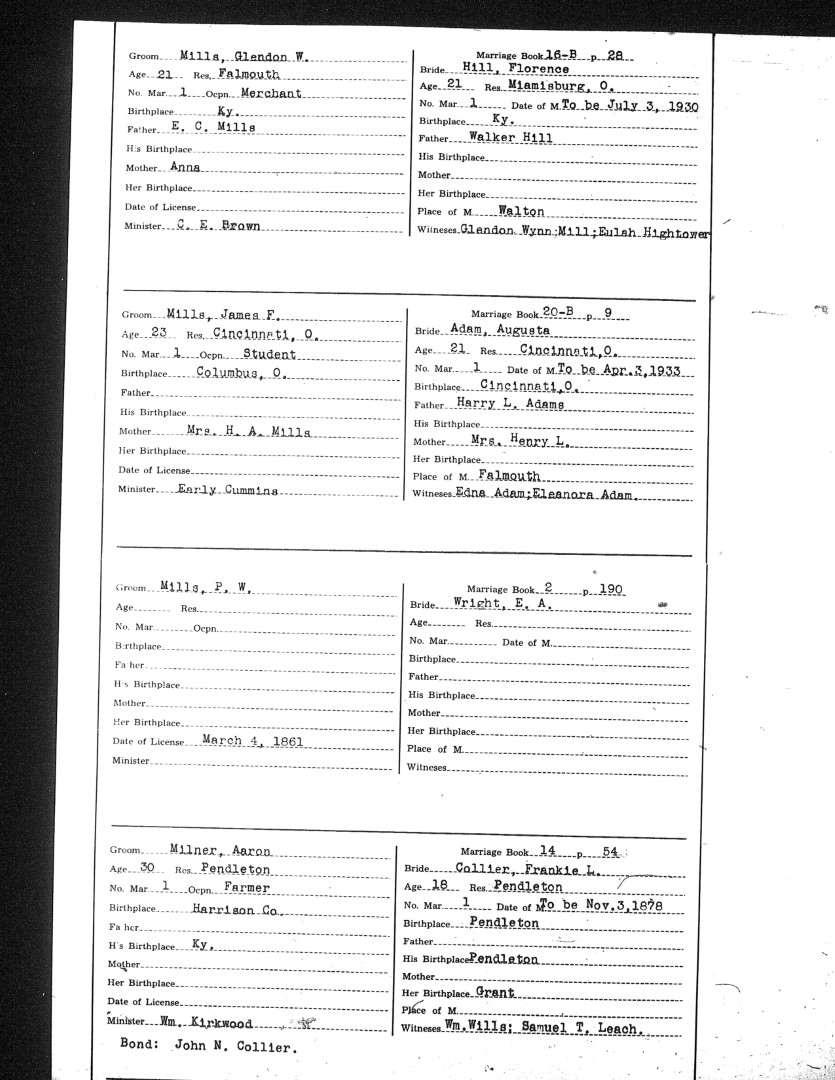 Groom Mills, Glendon W.
Age 21 Res. Falmouth
No. Mar. 1 Ocpn. Merchant
Birthplace Ky.
Father E. C. Mills
His Birthplace
Mother Anna
Her Birthplace
Date of License
Minister C. E. Brown
Marriage Book 16-B p. 28
Bride Hill, Florence
Age 21 Res. Miamisburg, O.
No. Mar. 1 Date of M. To be July 3, 1930
Birthplace Ky.
Father Walker Hill
His Birthplace
Mother
Her Birthplace
Place of M. Walton
Witneses Glendon Wynn;Mill;Eulah Hightower
Groom Mills, James F.
Age 23 Res. Cincinnati, O.
No. Mar. 1 Ocpn. Student
Birthplace Columbus, O.
Father
His Birthplace
Mother Mrs. H. A. Mills
Her Birthplace
Date of License
Minister Early Cummins
Marriage Book 20-B p. 9
Bride Adam, Augusta
Age 21 Res. Cincinnati,O.
No. Mar. 1 Date of M. To be Apr.3,1933
Birthplace Cincinnati,O.
Father Harry L. Adams
His Birthplace
Mother Mrs. Henry L.
Her Birthplace
Place of M. Falmouth
Witneses Edna Adam;Eleanora Adam.
Groom Mills, P. W.
Age Res.
No. Mar. Ocpn.
Birthplace
Father
His Birthplace
Mother
Her Birthplace
Date of License March 4, 1861
Minister
Marriage Book 2 p. 190
Bride Wright, E. A.
Age Res.
No. Mar. Date of M.
Birthplace
Father
His Birthplace
Mother
Her Birthplace
Place of M.
Witneses
Groom Milner, Aaron
Age 30 Res. Pendleton
No. Mar. 1 Ocpn. Farmer
Birthplace Harrison Co.
Father
His Birthplace Ky.
Mother
Her Birthplace
Date of License
Minister Wm. Kirkwood
Bond: John N. Collier.
Marriage Book 14 p. 54
Bride Collier, Frankie L.
Age 18 Res. Pendleton
No. Mar. 1 Date of M. To be Nov.3,1878
Birthplace Pendleton
Father
His Birthplace Pendleton
Mother
Her Birthplace Grant
Place of M.
Witneses Wm.Wills; Samuel T. Leach.